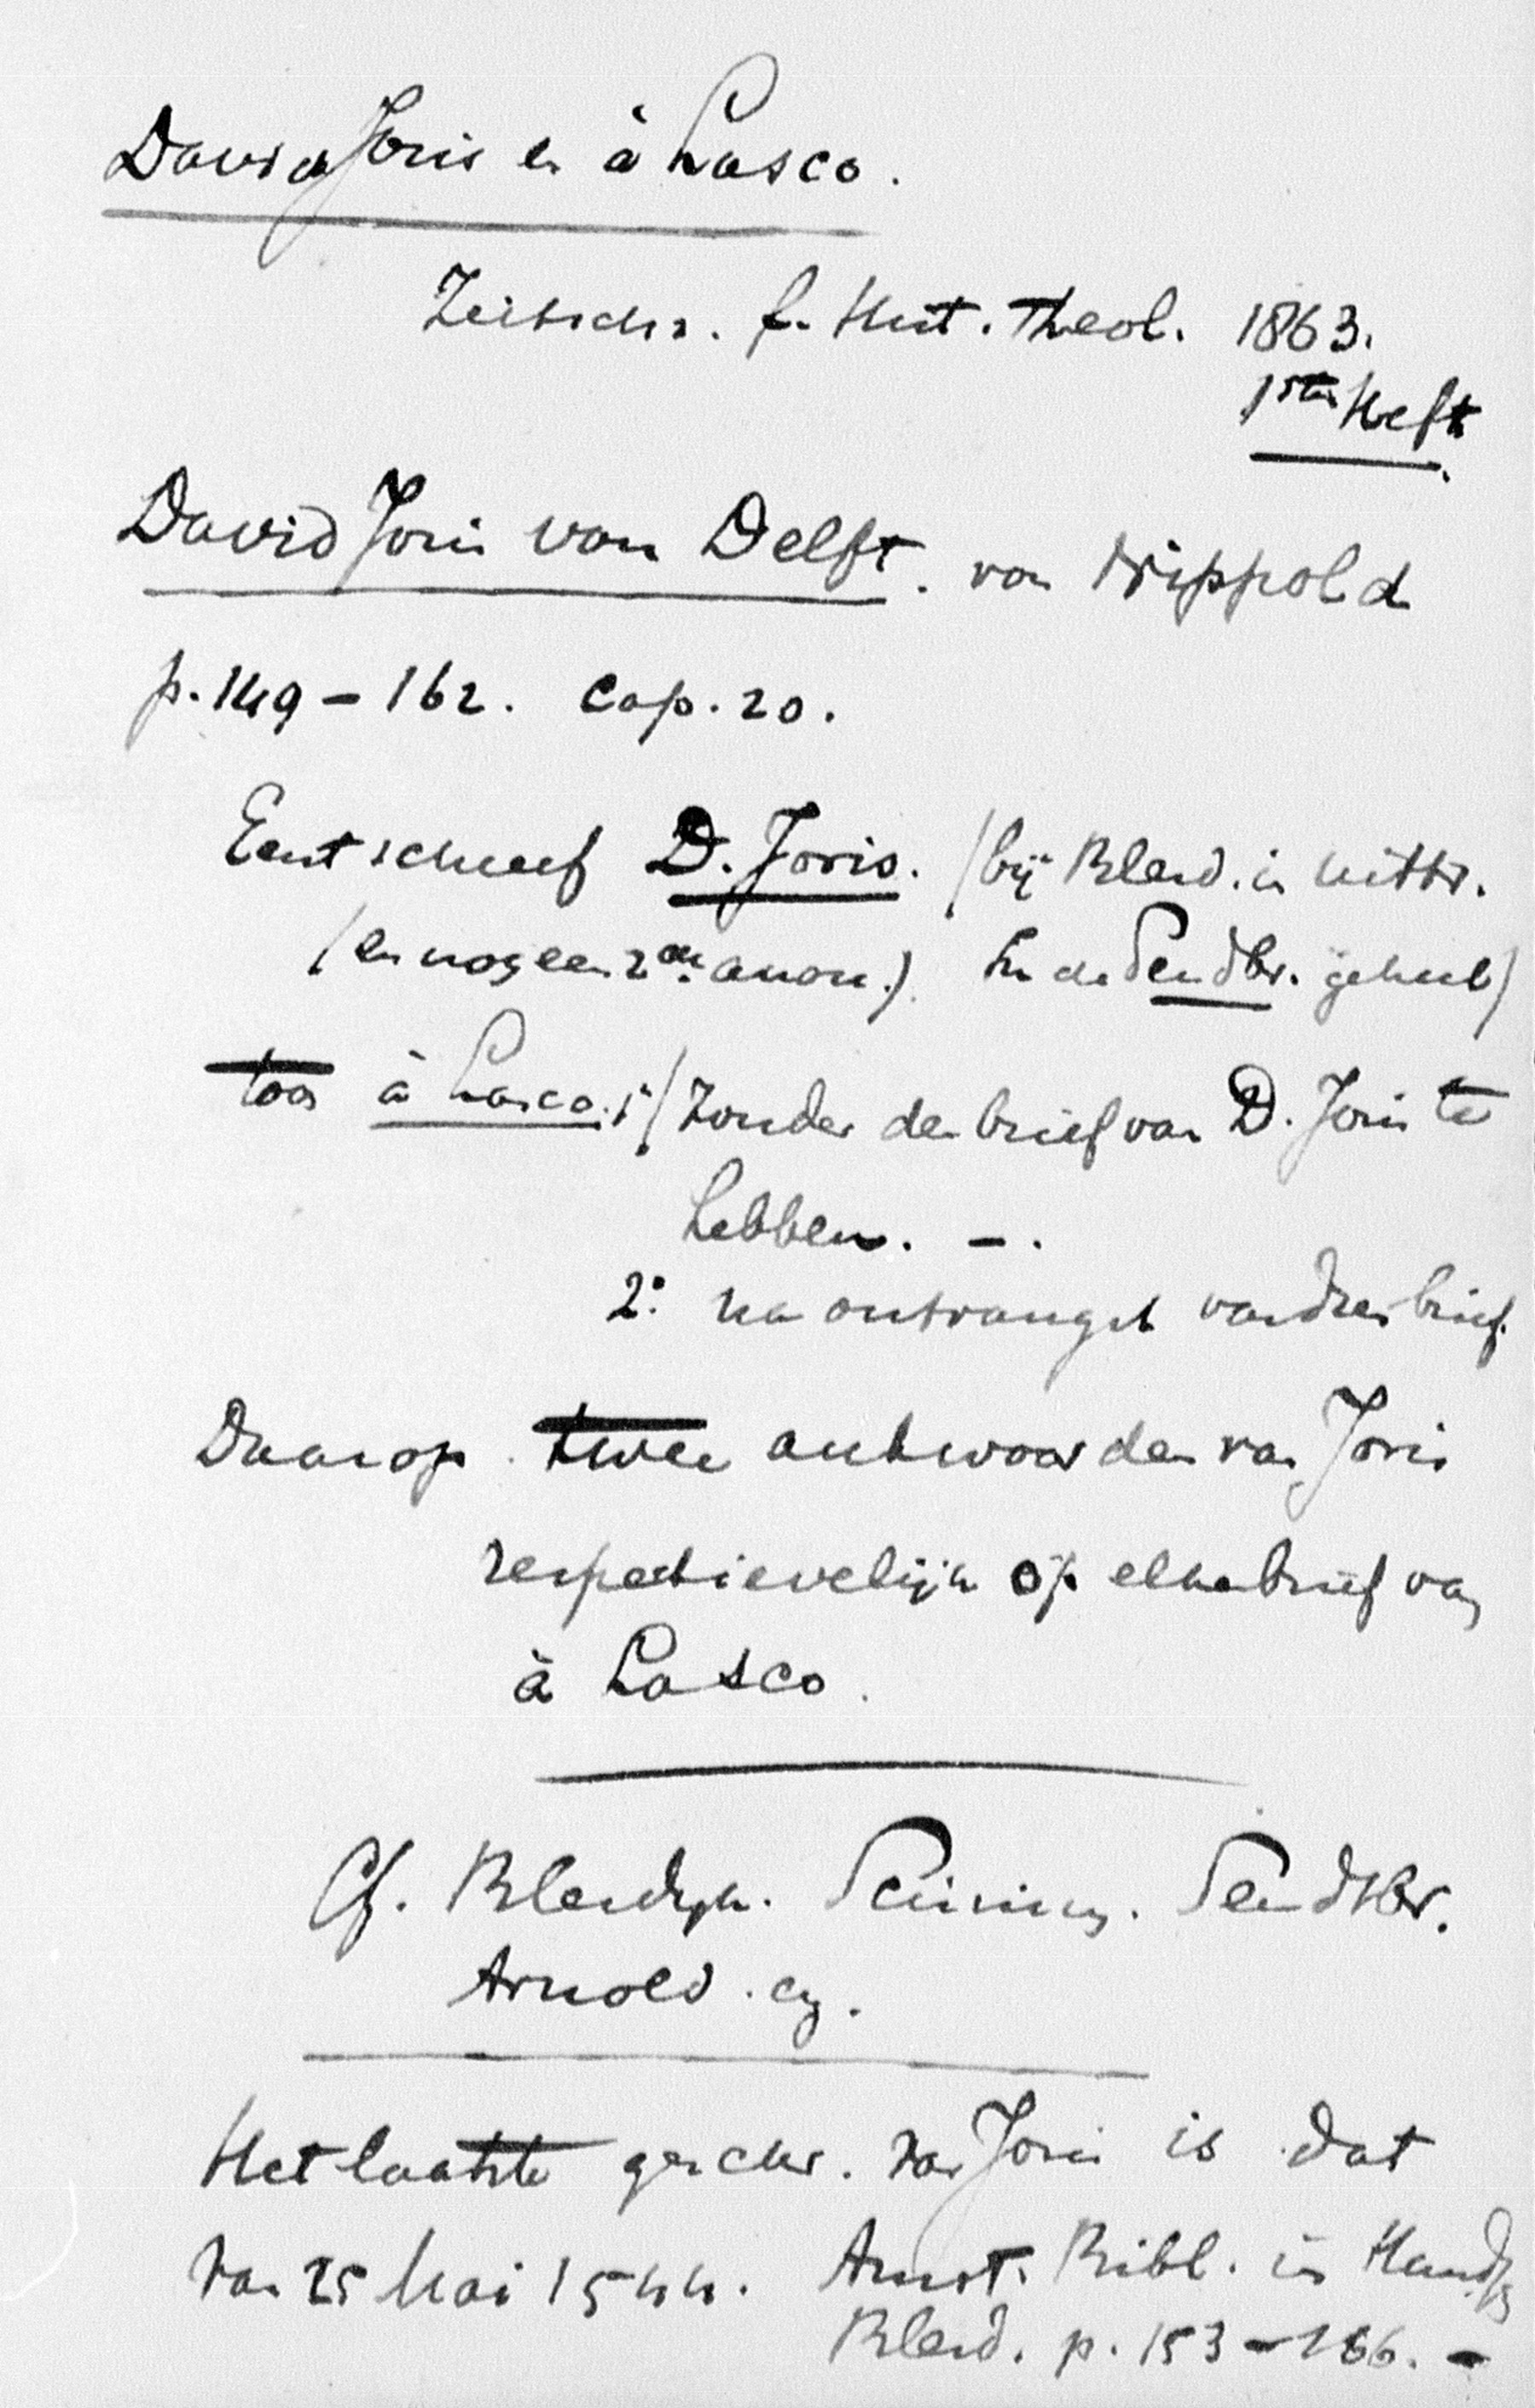 David Joris en à Lasco.
Zeitschr. f. Hist. Theol. 1863.
1stes Heft.
David Joris von Delft. von Nippold
p. 149 – 162. Cap. 20.
Eerst schreef D. Joris. (bij Blesd. in uittr.
(en nog een 2de anon.). In de Sendbr. geheel)
toen à Lasco. 1° (zonder den brief van D. Joris te
hebben. –.
2° na ontvangst van dien brief.
Daarop twee antwoorden van Joris
respectievelijk op elke brief van
à Lasco.
Cf. Blesdijk. Sendbr.
Arnold.
Het laatste geschr. van Joris is dat
van 25 Mai 1544. Amst. Bibl. in Handschr
Blesd. p. 153 – 166. –